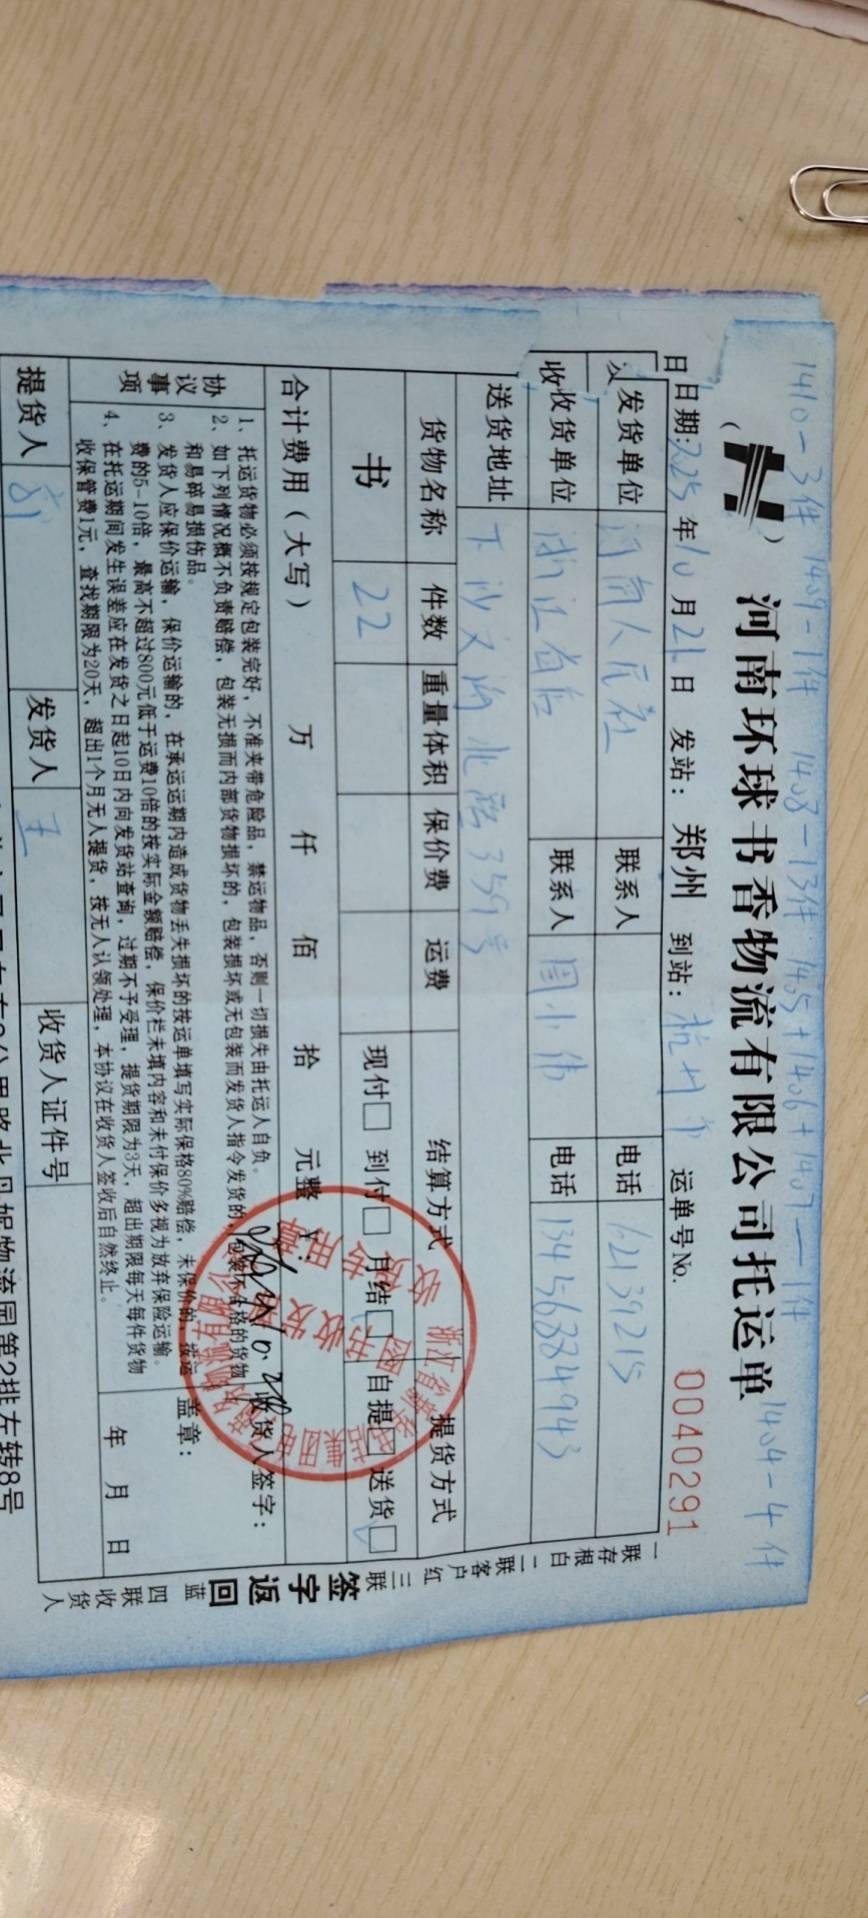 1410-3件 1409-1件 1408-13件 1405+1406+1407-1件 1404-4件
河南环球书香物流有限公司托运单
日期:2025年10月21日 发站: 郑州 到站: 杭州 运单号No. 0040291
发货单位 河南人民社 联系人 电话 62139215
收货单位 浙江省店 联系人 周小伟 电话 13456884943
送货地址 下沙文渊北路359号
货物名称 件数 重量体积 保价费 运费 结算方式 提货方式
书 22 现付□ 到付□ 月结□ 自提□ 送货□
合计费用(大写) 万 仟 佰 拾 元整 ¥:
协议事项
1、托运货物必须按规定包装完好,不准夹带危险品,禁运物品,否则一切损失由托运人自负。
2、如下列情况概不负责赔偿,包装无损而内部货物损坏的,包装损坏或无包装而发货人指令发货的,包装不合格的货物
和易碎易损伤品。
3、发货人应保价运输,保价运输的,在承运期内造成货物丢失损坏的按运单填写实际保格80%赔偿,未保价的,按运
费的5-10倍,最高不超过800元低于运费10倍的按实际金额赔偿,保价栏未填内容和未付保价多视为放弃保险运输。
4、在托运期间发生误差应在发货之日起10日内向发货站查询,过期不予受理,提货期限为3天,超出期限每天每件货物
收保管费1元,查找期限为20天,超出1个月无人提货,按无人认领处理,本协议在收货人签收后自然终止。
收货人签字:
盖章:
年 月 日
提货人 刘 发货人 王 收货人证件号
物流园第2排左转8号
一联存根白 二联客户红 三联签字返回蓝 四联收货人
图书收发
收货专用章